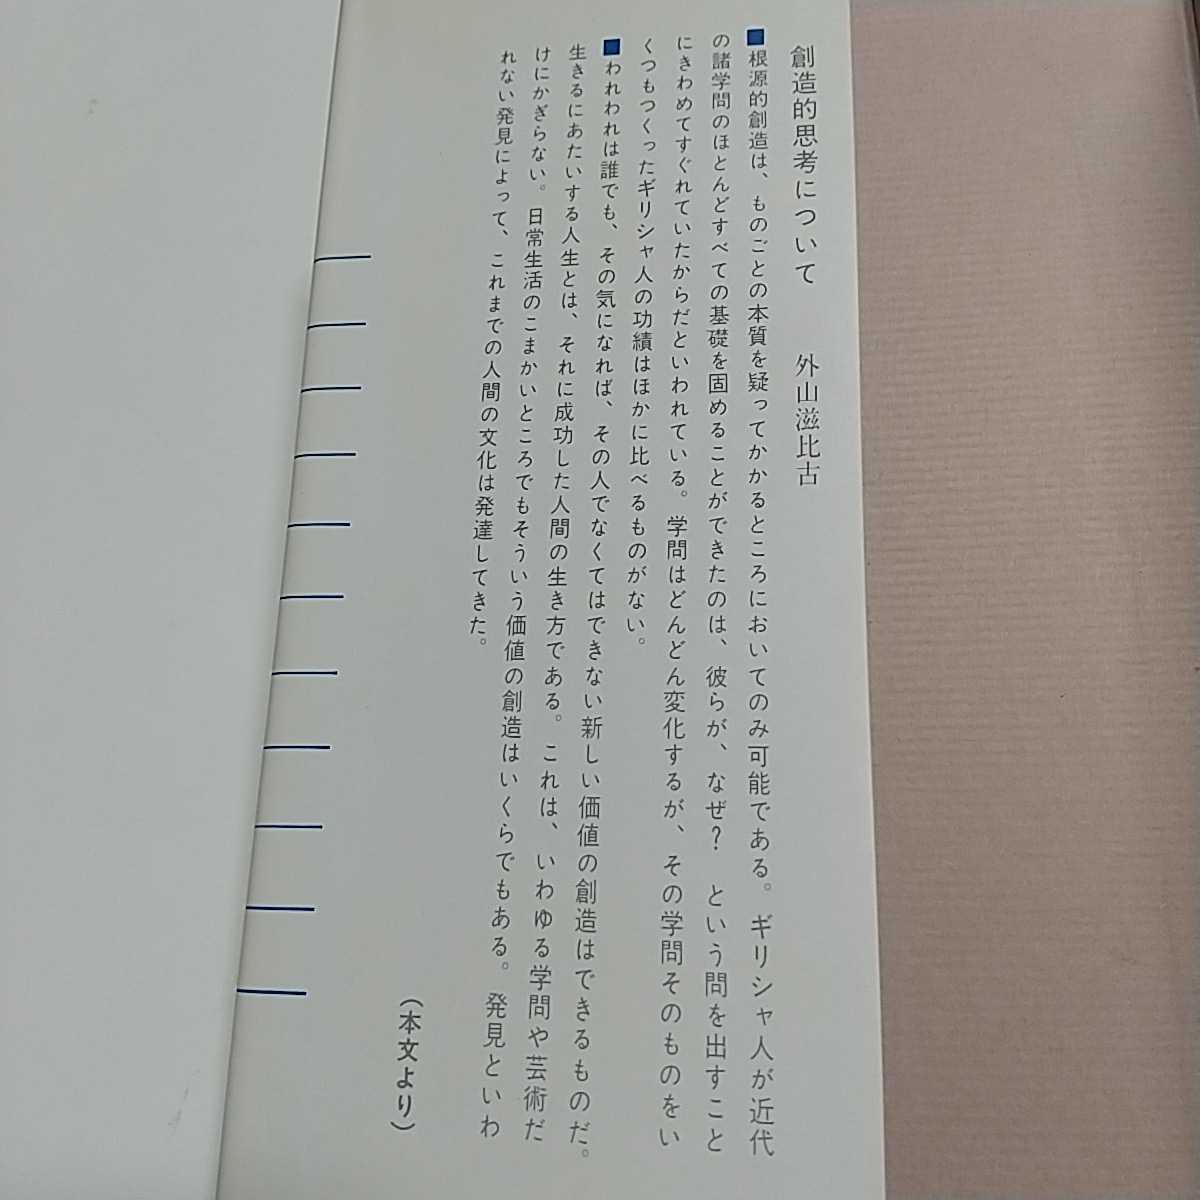 創造的思考について　外山滋比古
■根源的創造は、ものごとの本質を疑ってかかるところにおいてのみ可能である。ギリシャ人が近代
の諸学問のほとんどすべての基礎を固めることができたのは、彼らが、なぜ？　という問を出すこと
にきわめてすぐれていたからだといわれている。学問はどんどん変化するが、その学問そのものをい
くつもつくったギリシャ人の功績はほかに比べるものがない。
■われわれは誰でも、その気になれば、その人でなくてはできない新しい価値の創造はできるものだ。
生きるにあたいする人生とは、それに成功した人間の生き方である。これは、いわゆる学問や芸術だ
けにかぎらない。日常生活のこまかいところでもそういう価値の創造はいくらでもある。発見といわ
れない発見によって、これまでの人間の文化は発達してきた。
（本文より）